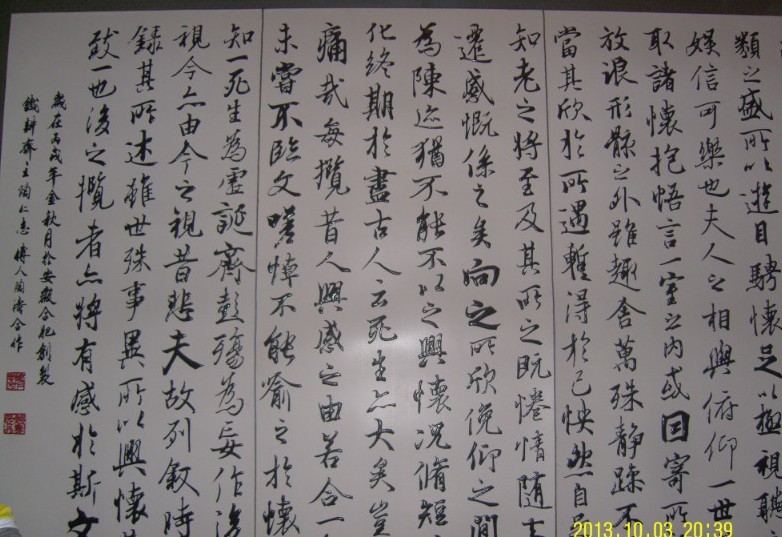 類之盛所以遊目騁懷足以極視聽
娛信可樂也夫人之相與俯仰一世
取諸懷抱悟言一室之內或因寄所
放浪形骸之外雖趣舍萬殊靜躁不
當其欣於所遇暫得於己怏然自足
知老之將至及其所之既惓情隨事
遷感慨係之矣向之所欣俛仰之間
為陳迹猶不能不以之興懷況脩短
化終期於盡古人云死生亦大矣豈
痛哉每攬昔人興感之由若合一
未嘗不臨文嗟悼不能喻之於懷
知一死生為虛誕齊彭殤為妄作後
視今亦由今之視昔悲夫故列敘時
錄其所述雖世殊事異所以興懷其
致一也後之攬者亦將有感於斯文
歲在丙戌年金秋月於安徽合肥創製
鐵耕齋主陶仁志 傳人陶濤合作
2013.10.03 20:39